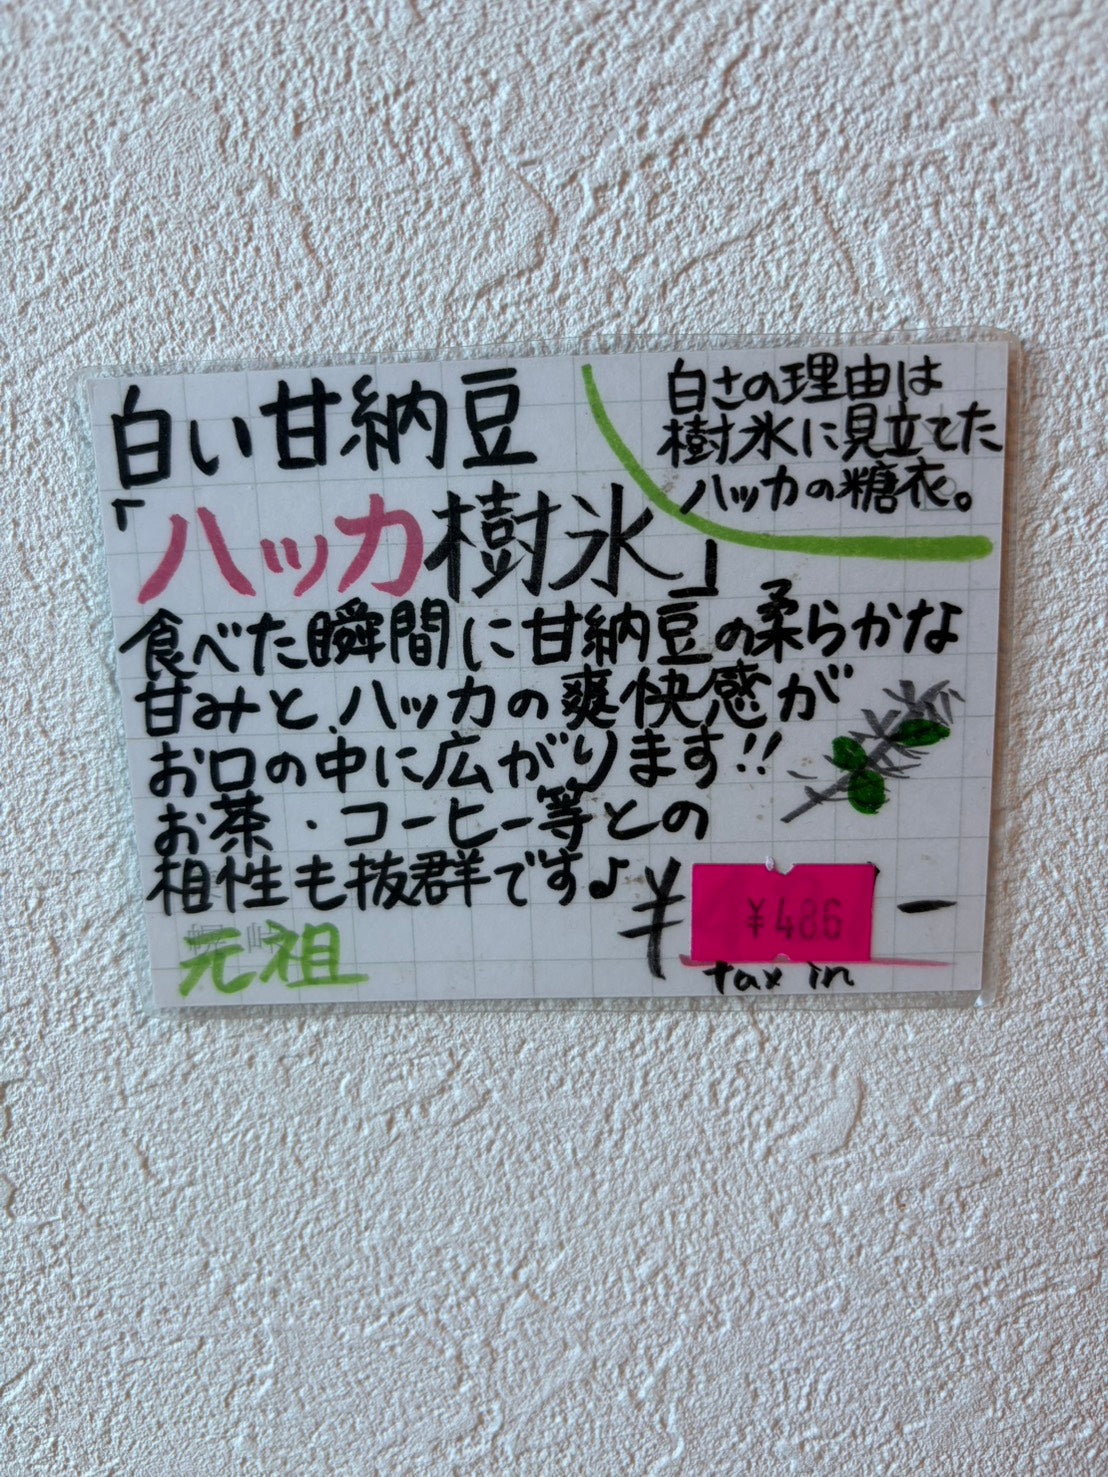 白い甘納豆
「ハッカ樹氷」
白さの理由は
樹氷に見立てた
ハッカの糖衣。
食べた瞬間に甘納豆の柔らかな
甘みと、ハッカの爽快感が
お口の中に広がります!!
お茶・コーヒー等との
相性も抜群です♪
元祖
¥ ¥486 ー
tax in